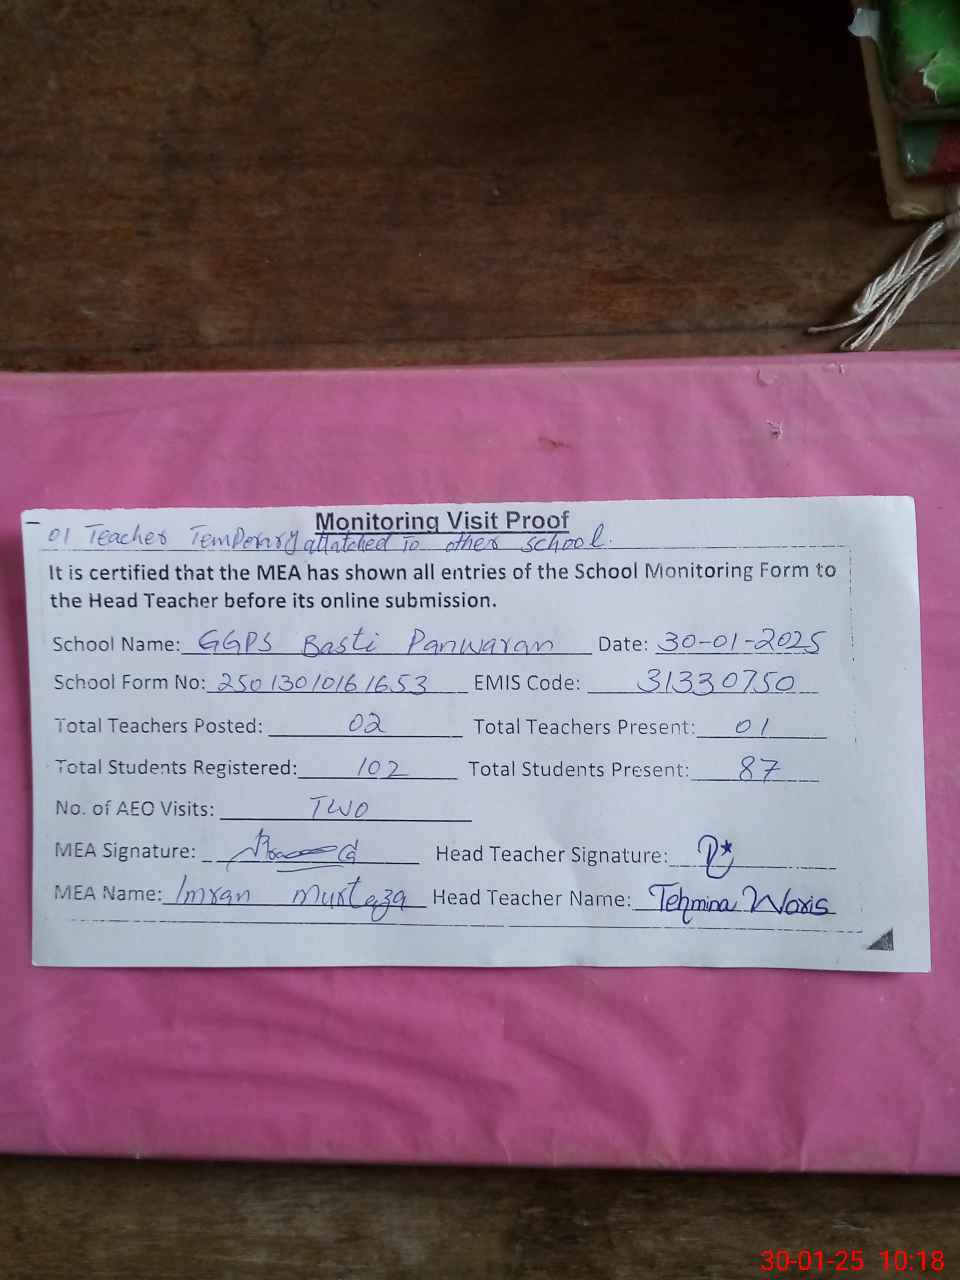 Monitoring Visit Proof
01 Teacher Temperary attatched to other school.
It is certified that the MEA has shown all entries of the School Monitoring Form to
the Head Teacher before its online submission.
School Name: GGPS Basti Panwaran Date: 30-01-2025
School Form No: 25013010161653 EMIS Code: 31330750
Total Teachers Posted: 02 Total Teachers Present: 01
Total Students Registered: 102 Total Students Present: 87
No. of AEO Visits: TWO
MEA Signature: Head Teacher Signature:
MEA Name: Imran Murtaza Head Teacher Name: Tehmina Waris
30-01-25 10:18